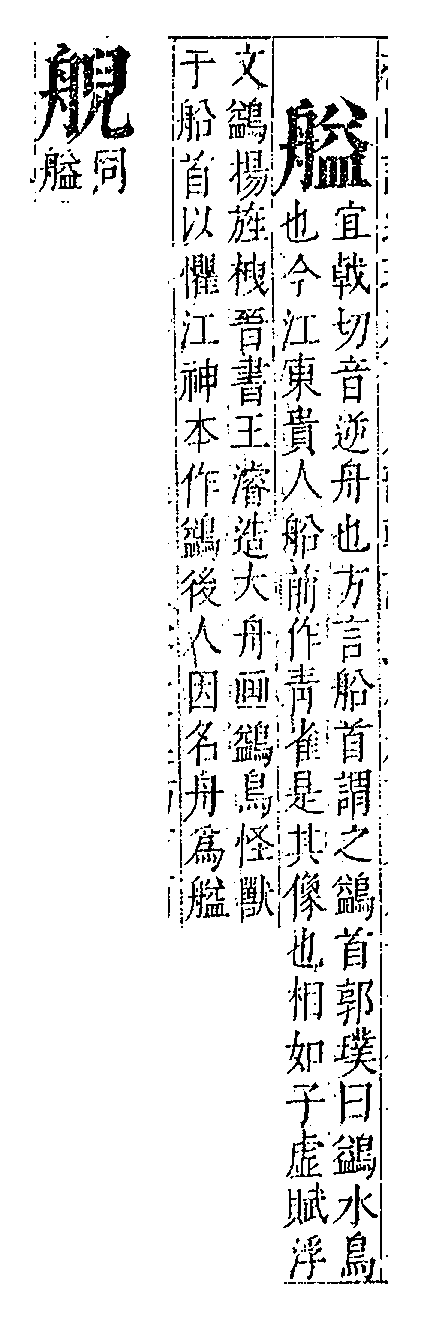 艗
宜戟切音逆舟也方言船首謂之鷁首郭璞曰鷁水鳥
也今江東貴人船前作青雀是其像也相如子虛賦浮
文鷁揚旌栧晉書王濬造大舟画鷁鳥怪獸
于船首以懼江神本作鷁後人因名舟為艗
艗同